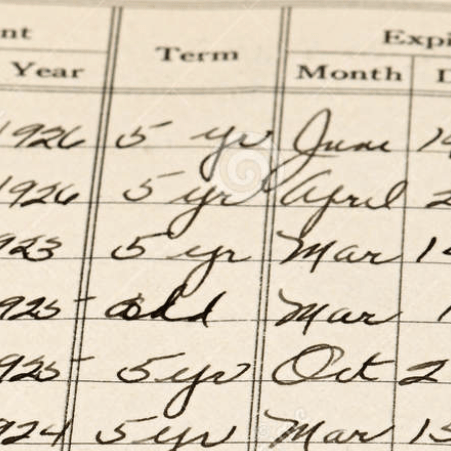 nt Term Expi
Year Month D
1926 5 yr June 14
1926 5 yr April 2
923 5 yr Mar 1
925 add Mar 1
925 5 yr Oct 2
924 5 yr Mar 15